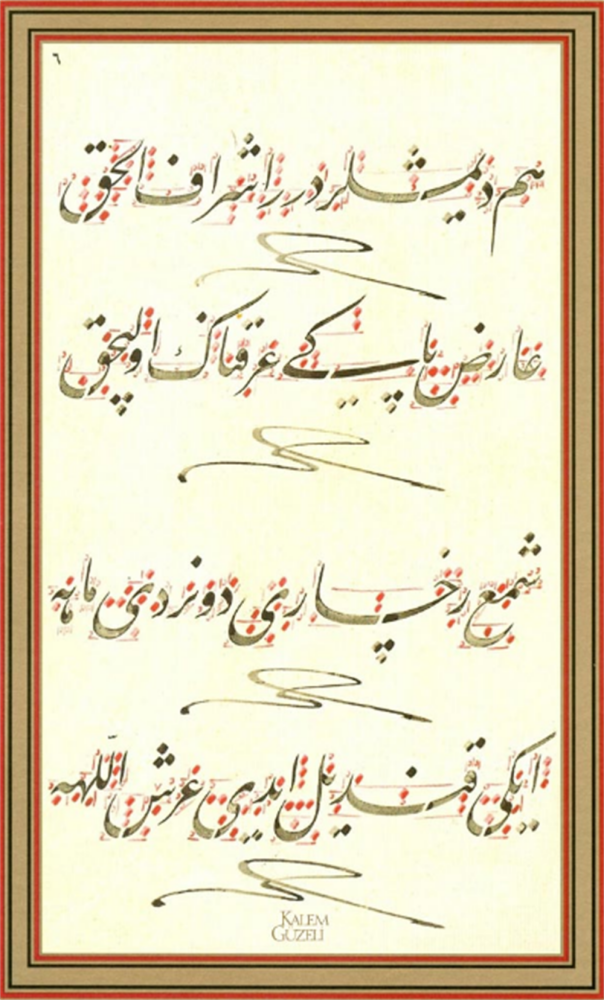 ٦
هم دیمشلردر اشراف الحق
عارض پاکی عرقناك اولیجق
شمع رخساری دونردی ماهه
ایکی قندیل ایدی عرش اللهه
KALEM
GÜZELİ